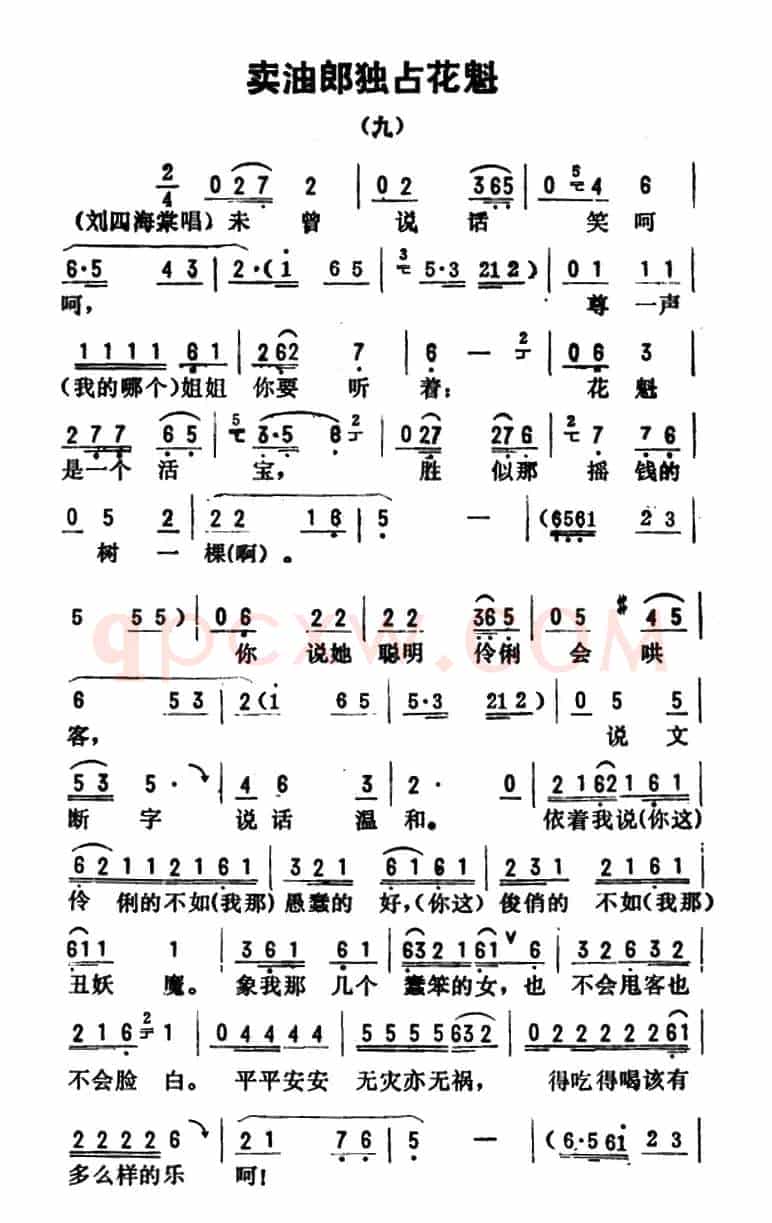 卖油郎独占花魁
（九）
2/4 0 2 7 2 | 0 2 3 6 5 | 0 5 4 6 |
（刘四海棠唱）未曾 说话 笑呵
6·5 4 3 | 2·(i 6 5 | 3 5·3 2 1 2) | 0 1 1 1 |
呵， 尊一声
1 1 1 1 6 1 | 2 6 2 7 | 6 — 2 | 0 6 3 |
（我的哪个）姐姐 你要 听 着； 花魁
2 7 7 6 5 | 5 3·5 6 2 | 0 2 7 2 7 6 | 2 7 7 6 |
是一个 活 宝， 胜 似那 摇 钱的
0 5 2 | 2 2 1 6 | 5 — | (6 5 6 1 2 3 |
树 一 棵(啊）。
5 5 5) | 0 6 2 2 | 2 2 3 6 5 | 0 5 #4 5 |
你 说她 聪明 伶俐 会 哄
6 5 3 | 2 (i 6 5 | 5·3 2 1 2) | 0 5 5 |
客， 说 文
5 3 5· | 4 6 3 | 2· 0 | 2 1 6 2 1 6 1 |
断 字 说话 温 和。 依着我说(你这)
6 2 1 1 2 1 6 1 | 3 2 1 6 1 6 1 | 2 3 1 2 1 6 1 |
伶 俐的不如(我那) 愚蠢的 好，(你这) 俊俏的 不如(我那)
6 1 1 1 | 3 6 1 6 1 | 6 3 2 1 6 1 ∨ 6 | 3 2 6 3 2 |
丑妖 魔。 象我那 几个 蠢笨的女，也 不会甩客也
2 1 6 2 1 | 0 4 4 4 4 | 5 5 5 5 6 3 2 | 0 2 2 2 2 2 6 1 |
不会脸 白。 平平安安 无灾亦无祸， 得吃得喝该有
2 2 2 2 6 | 2 1 7 6 | 5 — | (6·5 6 i 2 3 |
多么样的乐 呵!
qpcxw.COM